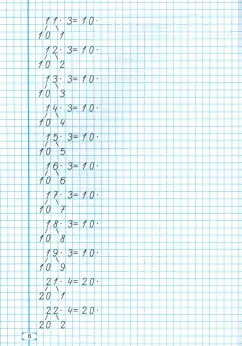 11· 3=10·
10 1
12· 3=10·
10 2
13· 3=10·
10 3
14· 3=10·
10 4
15· 3=10·
10 5
16· 3=10·
10 6
17· 3=10·
10 7
18· 3=10·
10 8
19· 3=10·
10 9
21· 4=20·
20 1
22· 4=20·
20 2
6